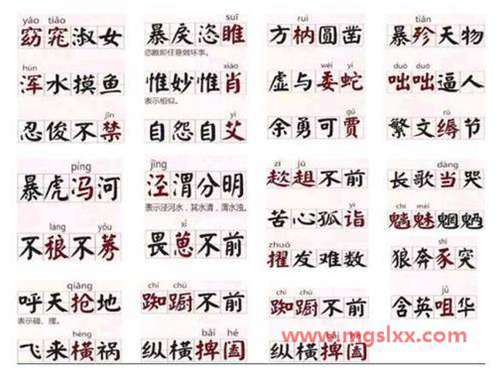 yǎo tiǎo
窈窕淑女
hún
浑水摸鱼
jīn
忍俊不禁
píng
暴虎冯河
láng yǒu
不稂不莠
qiāng
呼天抢地
表示碰、撞。
hèng
飞来横祸
suī
暴戾恣睢
恣睢即任意做坏事。
xiào
惟妙惟肖
表示相似。
yì
自怨自艾
jīng
泾渭分明
表示泾河水，其水清，渭水浊。
xǐ
畏葸不前
chí chú
踟蹰不前
bǎi hé
纵横捭阖
ruì
方枘圆凿
wēi yí
虚与委蛇
gǔ
余勇可贾
zī jū
趑趄不前
yì
苦心孤诣
zhuó
擢发难数
chí chú
踟蹰不前
纵横捭阖
tiǎn
暴殄天物
duō duō
咄咄逼人
rù
繁文缛节
dàng
长歌当哭
chī mèi
魑魅魍魉
shǐ
狼奔豕突
jǔ
含英咀华
www.mgslxx.com